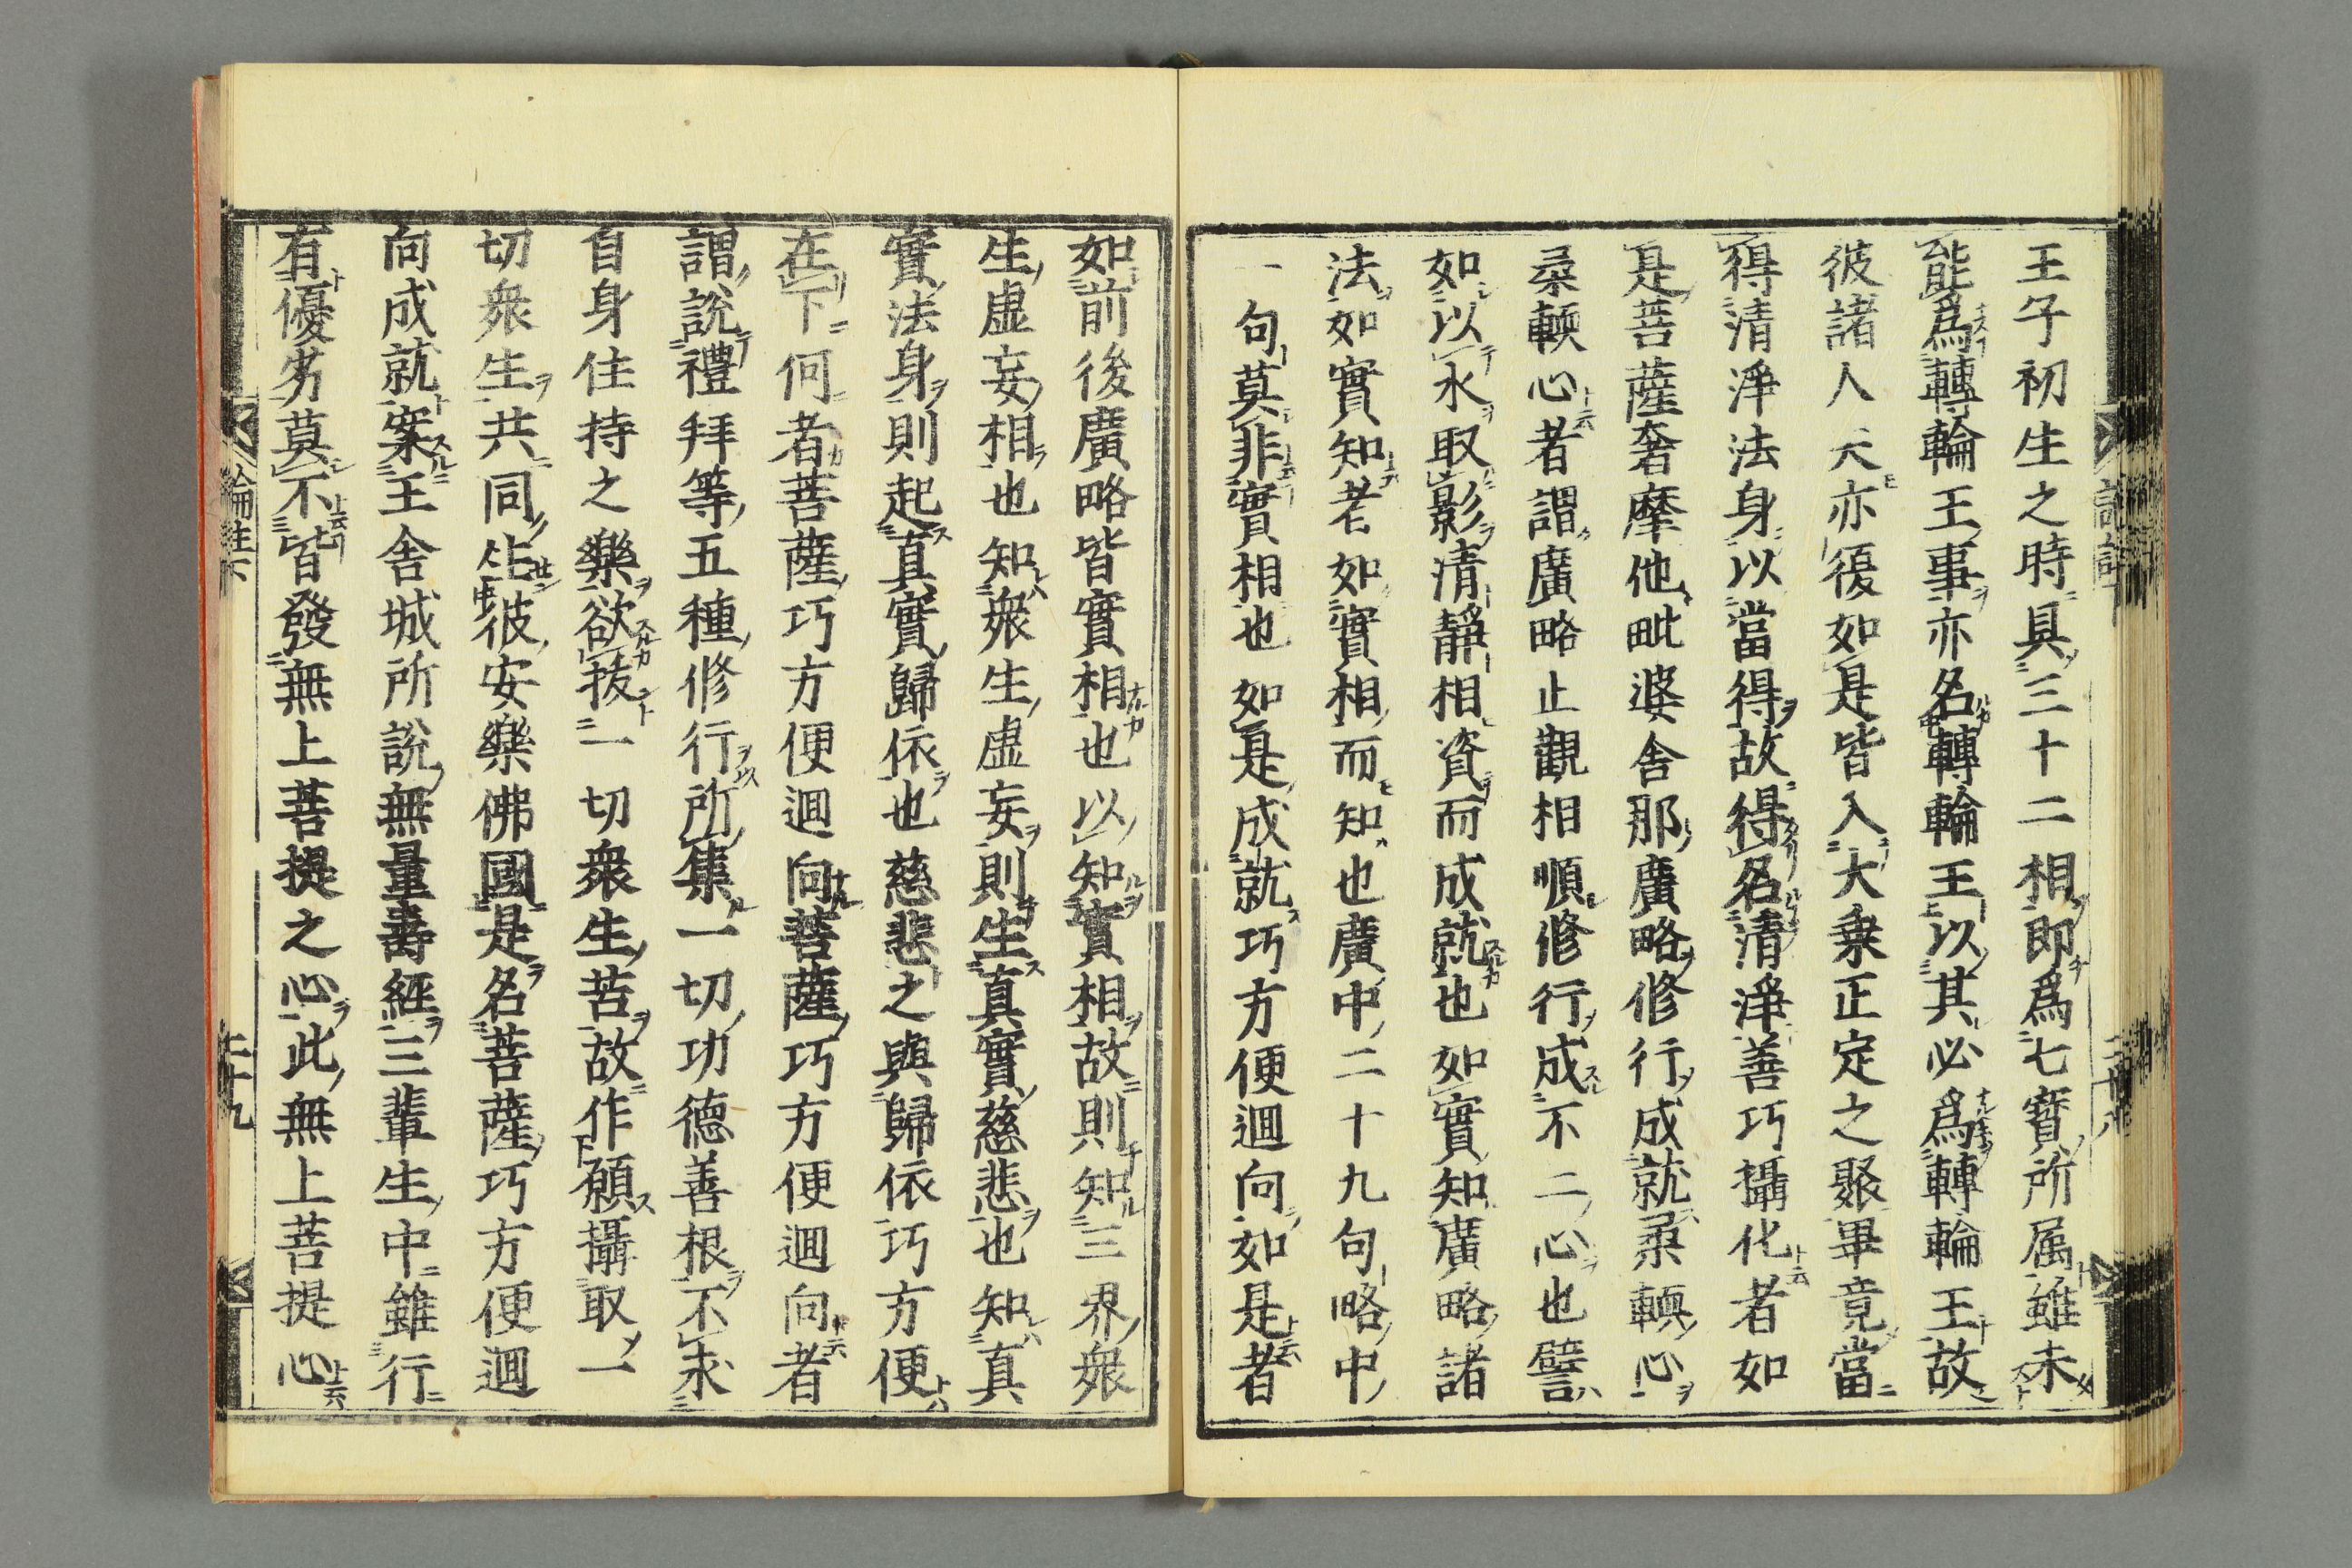 王子初生之時具三十二相即爲七寶所属雖未
能爲轉輪王事亦名轉輪王以其必爲轉輪王故
彼諸人天亦復如是皆入大乗正定之聚畢竟當
得清淨法身以當得故得名清淨善巧攝化者如
是菩薩奢摩他毗婆舍那廣略修行成就柔輭心
柔輭心者謂廣略止觀相順修行成不二心也譬
如以水取影清靜相資而成就也如實知廣略諸
法如實知者如實相而知也廣中二十九句略中
一句莫非實相也如是成就巧方便迴向如是者
如前後廣略皆實相也以知實相故則知三界衆
生虚妄相也知衆生虚妄則生真實慈悲也知真
實法身則起真實歸依也慈悲之與歸依巧方便
在下何者菩薩巧方便迴向菩薩巧方便迴向者
謂說禮拜等五種修行所集一切功德善根不求
自身住持之樂欲拔一切衆生苦故作願攝取一
切衆生共同生彼安樂佛國是名菩薩巧方便迴
向成就案王舎城所說無量壽經三輩生中雖行
有優劣莫不皆發無上菩提之心此無上菩提心
論註下
二十九